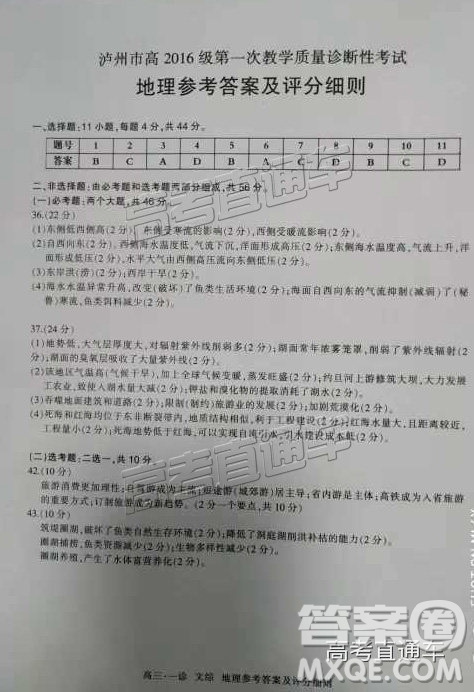 泸州市高 2016 级第一次教学质量诊断性考试
地理参考答案及评分细则
一、选择题：11 小题，每题 4 分，共 44 分。
题号 1 2 3 4 5 6 7 8 9 10 11
答案 B C A D B A D C A D
二、非选择题：由必考题和选考题两部分组成，共 56 分。
(一)必考题：两个大题，共 46 分。
36.(22 分)
(1)东侧低西侧高(2 分)；东侧受寒流影响(2 分)，西侧受暖流影响(2 分)。
(2)自西向东(2 分)。西侧海水温度低，气流下沉，洋面形成高压(2 分)；东侧海水温度高，气流上升，洋
面形成低压(2 分)，水平大气由高压流向低压(2 分)。
(3)东岸洪(涝)(2 分)；西岸干旱(2 分)。
(4)海水水温异常升高，改变(破坏)了鱼类生活环境(2 分)；海面自西向东的气流抑制(减弱)了(秘
鲁)寒流，鱼类饵料减少(2 分)。
37.(24 分)
(1)地势低，大气层厚度大，对辐射紫外线削弱多(2 分)；湖面常年浓雾笼罩，削弱了紫外线(2
分)；湖面的臭氧层吸收了大量紫外线(2 分)。
(2)该地区气温高(气候干旱)，加上全球气候变暖，蒸发旺盛(2 分)；约旦河上游修筑大坝，大力发展
工农业，致使入湖水量大减(2 分)；钾盐和溴化物的提取消耗了湖水(2 分)。
(3)吞噬地面建筑和道路(2 分)；限制(制约)旅游业的发展(2 分)；加剧荒漠化(2 分)。
(4)死海和红海均位于东非断裂带内，地质结构相似，利于工程建设(2 分)；红海水量大，且距离较近，
工程量小(2 分)；死海地势低于红海，可以实现海水自流(2 分)；引水建设成本不低(2 分)。
(二)选考题，二选一，共 10 分。
42.(10 分)
旅游消费更加理性；自驾游成为主流；短途游(城郊游)居主导；省内游成为主体；高铁成为入省旅游
的重要方式。(2 分一个要点，共 10 分)
43.(10 分)
筑堤圈湖，破坏了鱼类自然生存环境(2 分)；降低了洞庭湖削洪补枯的能力(2 分)；
圈湖捕捞，鱼类资源减少(2 分)；生物多样性减少(2 分)。
圈湖养殖，产生了水体富营养化(2 分)。
高三·一诊 文综 地理参考答案及评分细则
高考直通车
高考直通车
高考直通车
答案圈